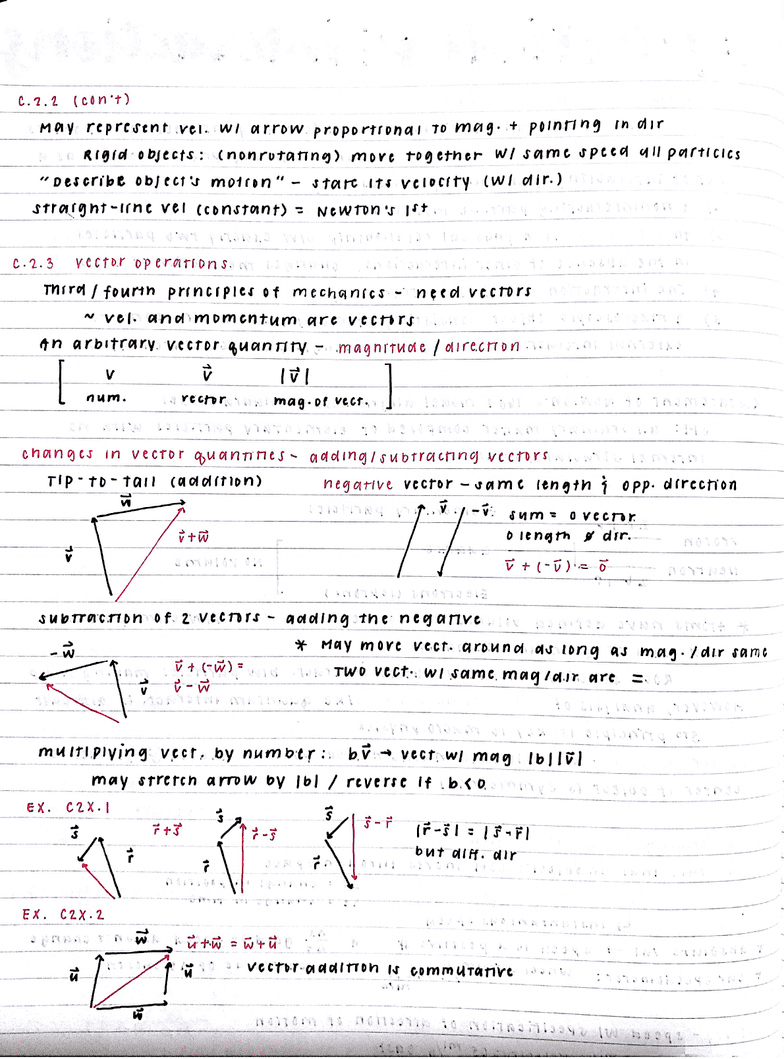 C.2.2 (con't)
May represent vel. w/ arrow proportional to mag. + pointing in dir
Rigid objects: (nonrotating) move together w/ same speed all particles
"Describe object's motion" - state its velocity (w/ dir.)
straight-line vel (constant) = Newton's 1st
C.2.3 vector operations
Third/fourth principles of mechanics - need vectors
~ vel. and momentum are vectors
An arbitrary vector quantity - magnitude/direction
v v⃗ |v⃗|
num. vector mag. of vect.
changes in vector quantities - adding/subtracting vectors
Tip-to-tail (addition) negative vector - same length & opp. direction
w⃗
v⃗ v⃗+w⃗
v⃗ -v⃗ sum = 0 vector
0 length ø dir.
v⃗ + (-v⃗) = 0⃗
subtraction of 2 vectors - adding the negative
* May move vect. around as long as mag./dir same
Two vect. w/ same mag/dir are =
-w⃗ v⃗ v⃗ + (-w⃗) =
v⃗ - w⃗
multiplying vect. by number: bv⃗ → vect w/ mag |b||v⃗|
may stretch arrow by |b| / reverse if b<0
EX. C2X.1
s⃗ r⃗ r⃗+s⃗
s⃗ r⃗ r⃗-s⃗
s⃗ r⃗ s⃗-r⃗
|r⃗-s⃗| = |s⃗-r⃗|
but diff. dir
EX. C2X.2
w⃗ u⃗+w⃗ = w⃗+u⃗
u⃗ u⃗ vector addition is commutative
w⃗